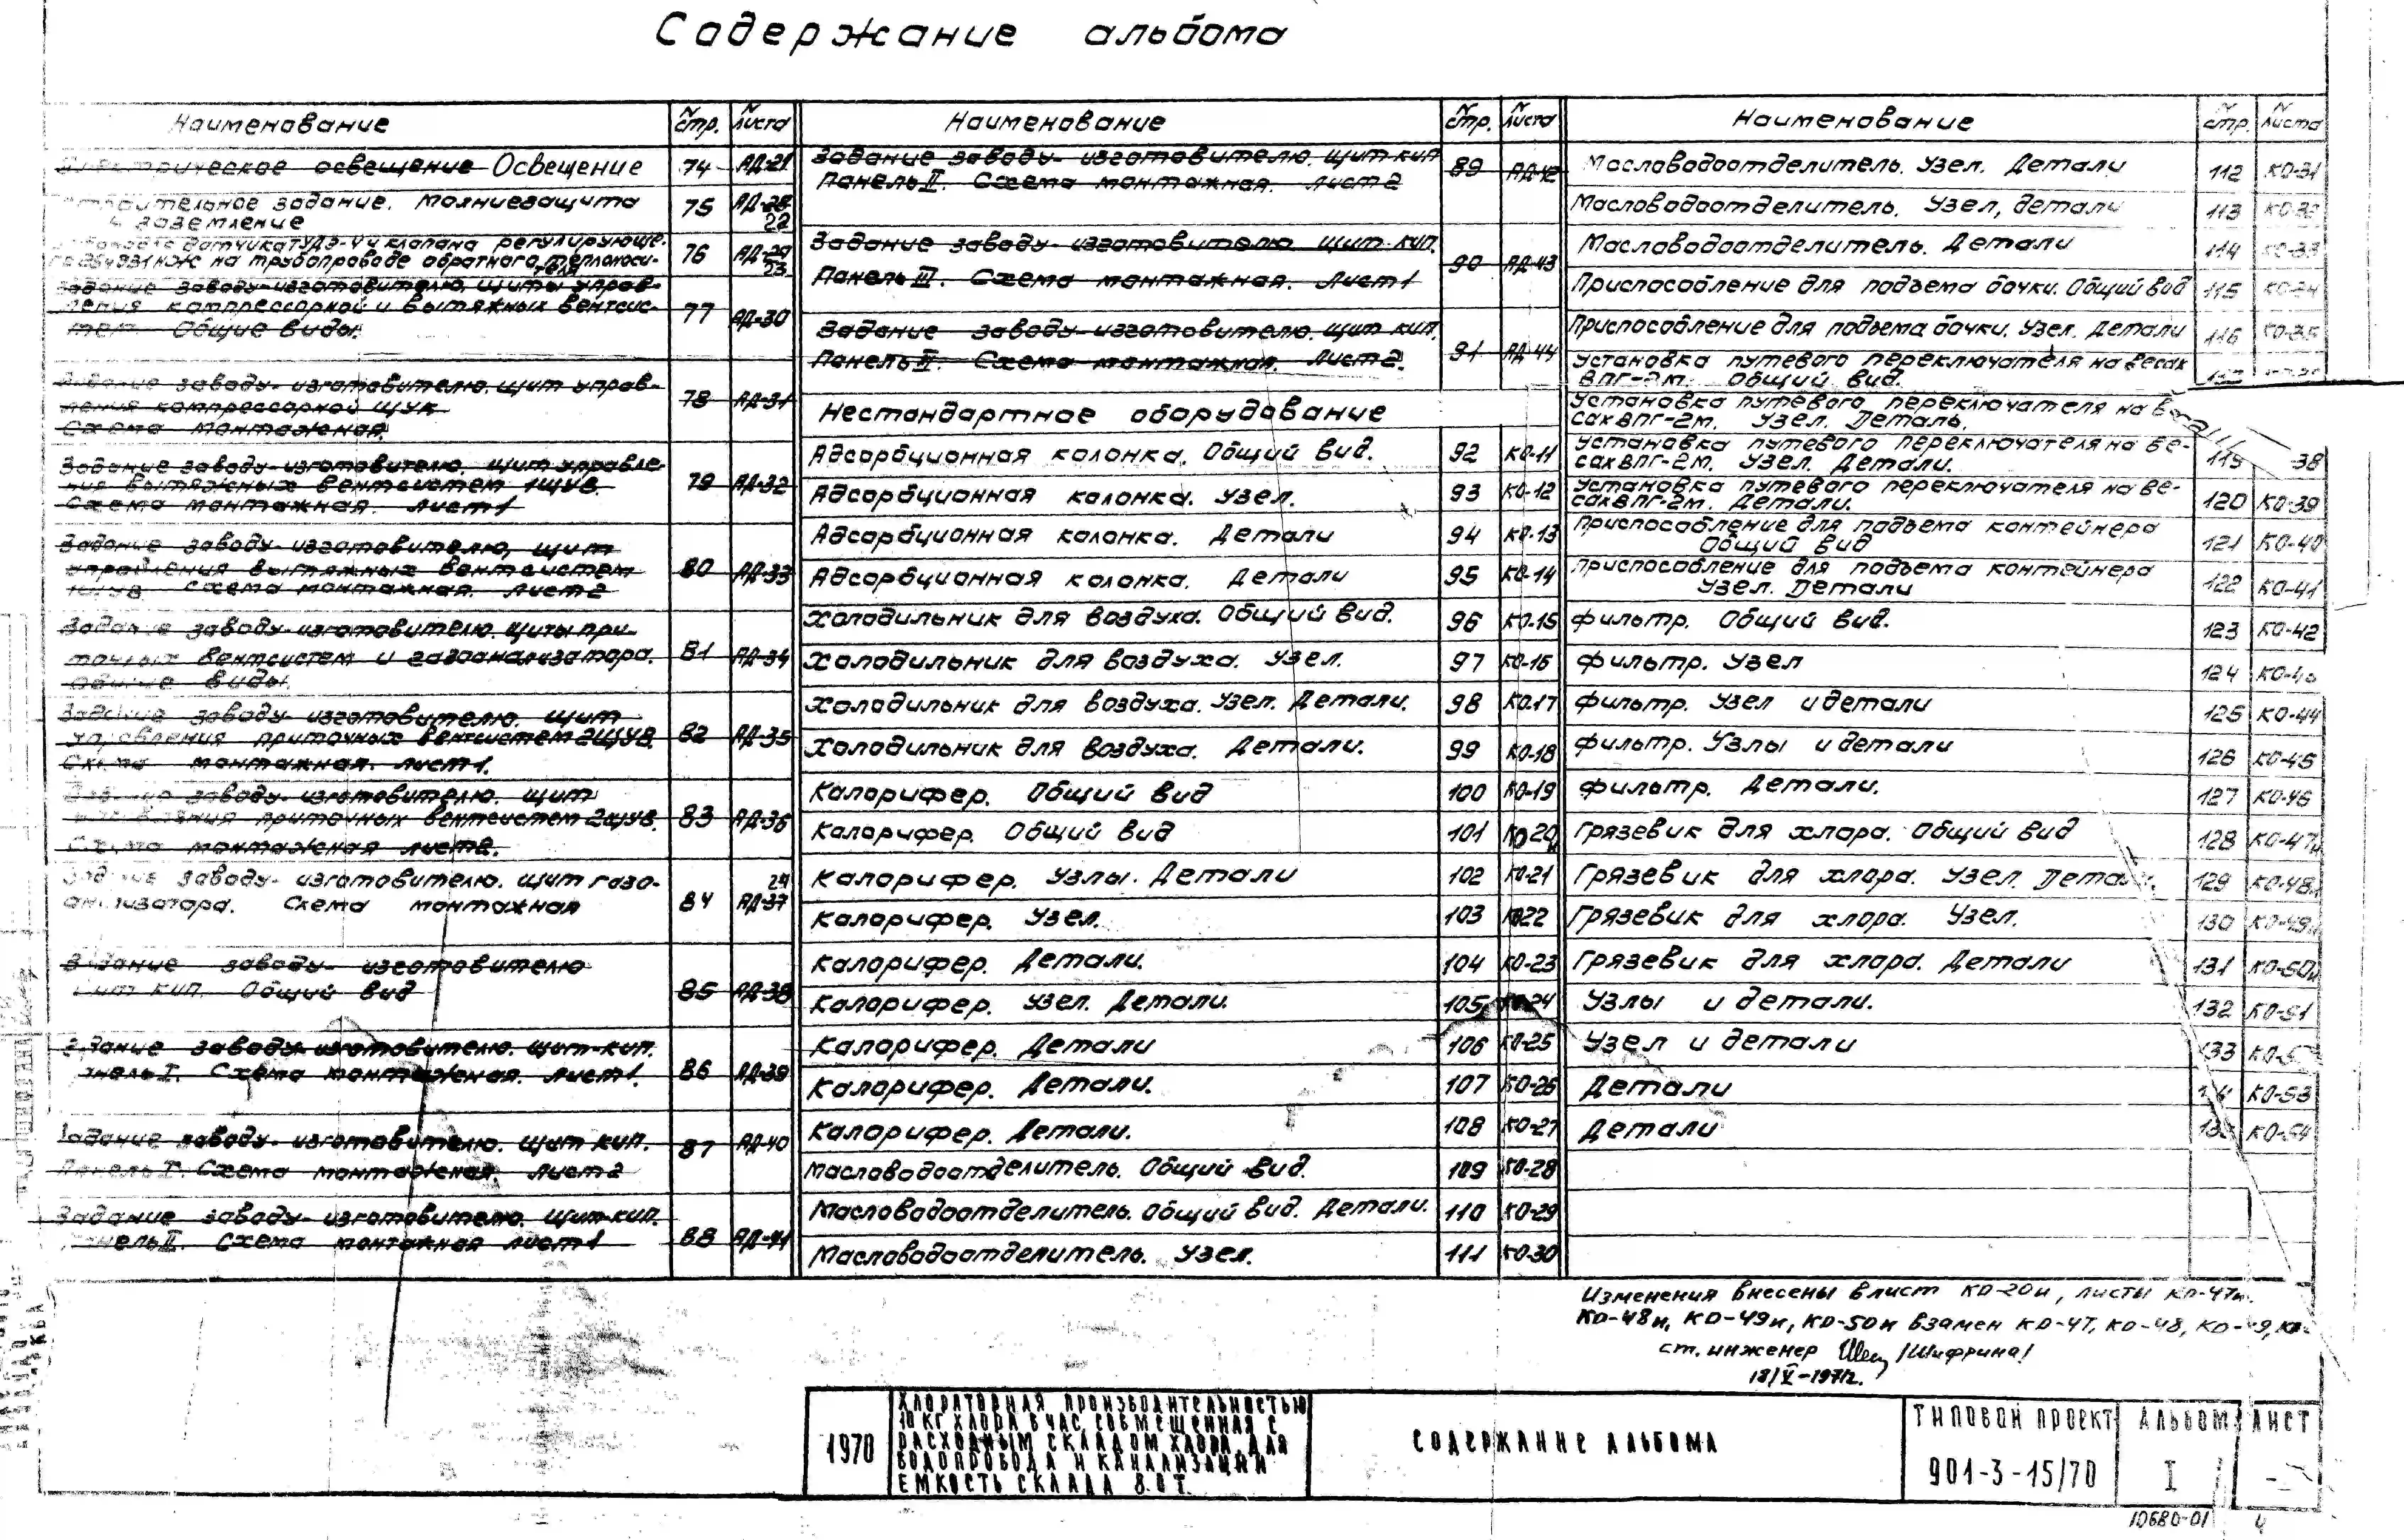 Содержание альбома
Наименование N стр. N листа
Электрическое освещение Освещение 74 АД-21
Строительное задание. Молниезащита
и заземление 75 АД-28 22
датчика ТУДЭ-4 и клапана регулирующе-
го 25ч931нж на трубопроводе обратного теплоноси-
теля 76 АД-29 23
Задание заводу-изготовителю, щиты управ-
ления компрессорной и вытяжных вентсис-
тем. Общие виды. 77 АД-30
Задание заводу-изготовителю. щит управ-
ления компрессорной ЩУК
Схема монтажная. 78 АД-31
Задание заводу-изготовителю. щит управле-
ния вытяжных вентсистем 1ЩУВ.
Схема монтажная. Лист 1 79 АД-32
Задание заводу-изготовителю, щит
управления вытяжных вентсистем
1ЩУВ Схема монтажная. Лист 2 80 АД-33
Задание заводу-изготовителю. Щиты при-
точных вентсистем и газоанализатора.
Общие виды. 81 АД-34
Задание заводу-изготовителю. щит
управления приточных вентсистем 2ЩУВ.
Схема монтажная. Лист 1. 82 АД-35
Задание заводу-изготовителю. щит
управления приточных вентсистем 2ЩУВ.
Схема монтажная лист 2. 83 АД-36
Задание заводу-изготовителю. щит газо-
анализатора. Схема монтажная 84 АД-37 24
Задание заводу-изготовителю
Щит КИП. Общий вид 85 АД-38
Задание заводу-изготовителю. щит КИП.
Панель I. Схема монтажная. Лист 1. 86 АД-39
Задание заводу-изготовителю. щит КИП.
Панель I. Схема монтажная. Лист 2 87 АД-40
Задание заводу-изготовителю. щит КИП.
Панель II. Схема монтажная лист 1 88 АД-41
Наименование N стр. N листа
Задание заводу-изготовителю. Щит КИП
Панель II. Схема монтажная. Лист 2 89 АД-42
Задание заводу-изготовителю щит КИП.
Панель III. Схема монтажная. Лист 1 90 АД-43
Задание заводу-изготовителю. щит КИП.
Панель III. Схема монтажная. Лист 2. 91 АД-44
Нестандартное оборудование
Адсорбционная колонка. Общий вид. 92 КО-11
Адсорбционная колонка. Узел. 93 КО-12
Адсорбционная колонка. Детали 94 КО-13
Адсорбционная колонка. Детали 95 КО-14
Холодильник для воздуха. Общий вид. 96 КО-15
Холодильник для воздуха. Узел. 97 КО-16
Холодильник для воздуха. Узел. Детали. 98 КО-17
Холодильник для воздуха. Детали. 99 КО-18
Калорифер. Общий вид 100 КО-19
Калорифер. Общий вид 101 КО-20и
Калорифер. Узлы. Детали 102 КО-21
Калорифер. Узел. 103 КО-22
Калорифер. Детали. 104 КО-23
Калорифер. Узел. Детали. 105 КО-24
Калорифер. Детали 106 КО-25
Калорифер. Детали. 107 КО-26
Калорифер. Детали. 108 КО-27
Масловодоотделитель. Общий вид. 109 КО-28
Масловодоотделитель. Общий вид. Детали. 110 КО-29
Масловодоотделитель. Узел. 111 КО-30
Наименование N стр. N листа
Масловодоотделитель. Узел. Детали 112 КО-31
Масловодоотделитель. Узел, детали 113 КО-32
Масловодоотделитель. Детали 114 КО-33
Приспособление для подъема бочки. Общий вид 115 КО-34
Приспособление для подъема бочки. Узел. Детали 116 КО-35
Установка путевого переключателя на весах
ВПГ-2м. Общий вид.
Установка путевого переключателя на ве-
сах ВПГ-2м. Узел. Деталь.
Установка путевого переключателя на ве-
сах ВПГ-2м. Узел. Детали. 119 38
Установка путевого переключателя на ве-
сах ВПГ-2м. Детали. 120 КО-39
Приспособление для подъема контейнера
Общий вид 121 КО-40
Приспособление для подъема контейнера
Узел. Детали 122 КО-41
Фильтр. Общий вид. 123 КО-42
Фильтр. Узел 124 КО-43
Фильтр. Узел и детали 125 КО-44
Фильтр. Узлы и детали 126 КО-45
Фильтр. Детали. 127 КО-46
Грязевик для хлора. Общий вид 128 КО-47и
Грязевик для хлора. Узел. Детали. 129 КО-48и
Грязевик для хлора. Узел. 130 КО-49и
Грязевик для хлора. Детали 131 КО-50и
Узлы и детали. 132 КО-51
Узел и детали 133
Детали КО-53
Детали КО-54
Изменения внесены в лист КО-20и, листы КО-47и.
КО-48и, КО-49и, КО-50и взамен КО-47, КО-48, КО-49,
ст. инженер /Шифрина/
18/V-1971г.
1970
ХЛОРАТОРНАЯ ПРОИЗВОДИТЕЛЬНОСТЬЮ
10 КГ ХЛОРА В ЧАС, СОВМЕЩЕННАЯ С
РАСХОДНЫМ СКЛАДОМ ХЛОРА, ДЛЯ
ВОДОПРОВОДА И КАНАЛИЗАЦИИ
ЕМКОСТЬ СКЛАДА 8.0 Т.
СОДЕРЖАНИЕ АЛЬБОМА
ТИПОВОЙ ПРОЕКТ АЛЬБОМ ЛИСТ
901-3-15/70 I -
10680-01 4